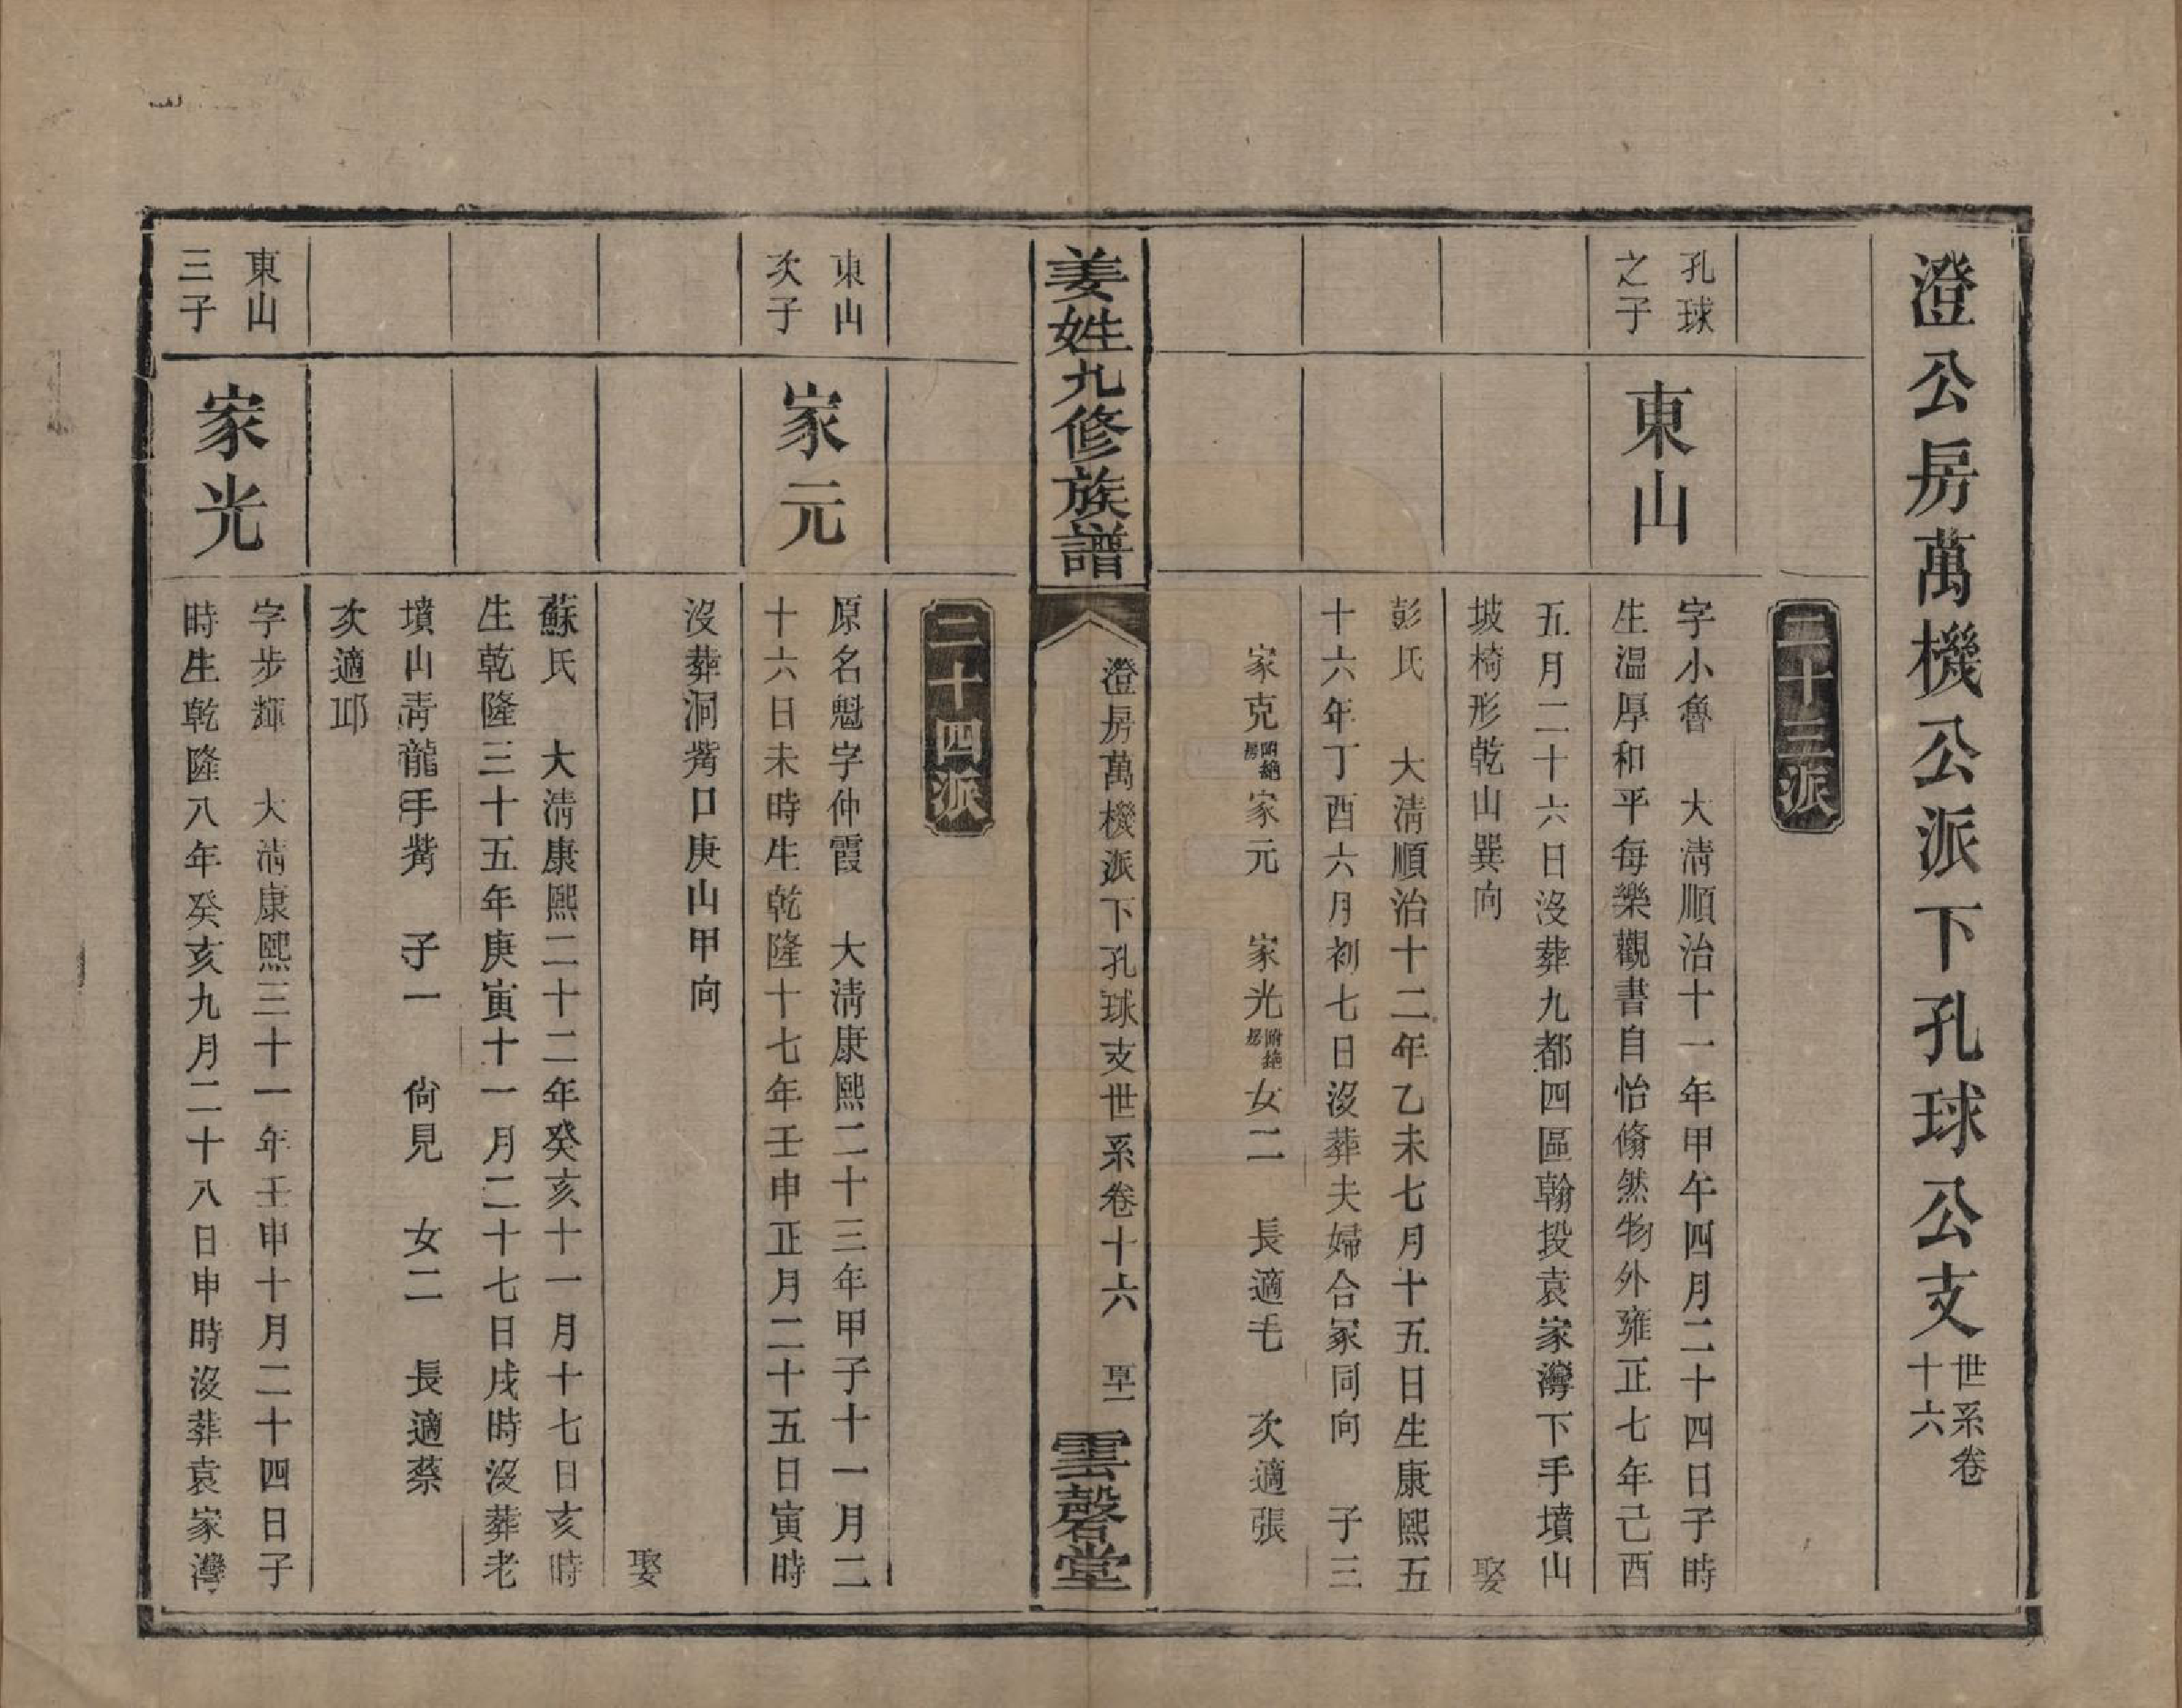 澄公房萬機公派下孔球公支世系卷十六
二十三派
孔球之子
東山
字小魯　大淸順治十一年甲午四月二十四日子時
生溫厚和平每樂觀書自怡翛然物外雍正七年己酉
五月二十六日沒葬九都四區翰投袁家灣下手墳山
坡椅形乾山巽向　娶
彭氏　大淸順治十二年乙未七月十五日生康熙五
十六年丁酉六月初七日沒葬夫婦合冢同向　子三
家克附絕房家元　家光附絕房女二　長適毛　次適張
姜姓九修族譜
澄房萬機派下孔球支世系卷十六
雲磬堂
二十四派
東山次子
家元
原名魁字仲霞　大淸康熙二十三年甲子十一月二
十六日未時生乾隆十七年壬申正月二十五日寅時
沒葬洞觜口庚山甲向
娶
蘇氏　大淸康熙二十二年癸亥十一月十七日亥時
生乾隆三十五年庚寅十一月二十七日戌時沒葬老
墳山靑龍手觜　子一　尙見　女二　長適蔡
次適邛
東山三子
家光
字步輝　大淸康熙三十一年壬申十月二十四日子
時生乾隆八年癸亥九月二十八日申時沒葬袁家灣